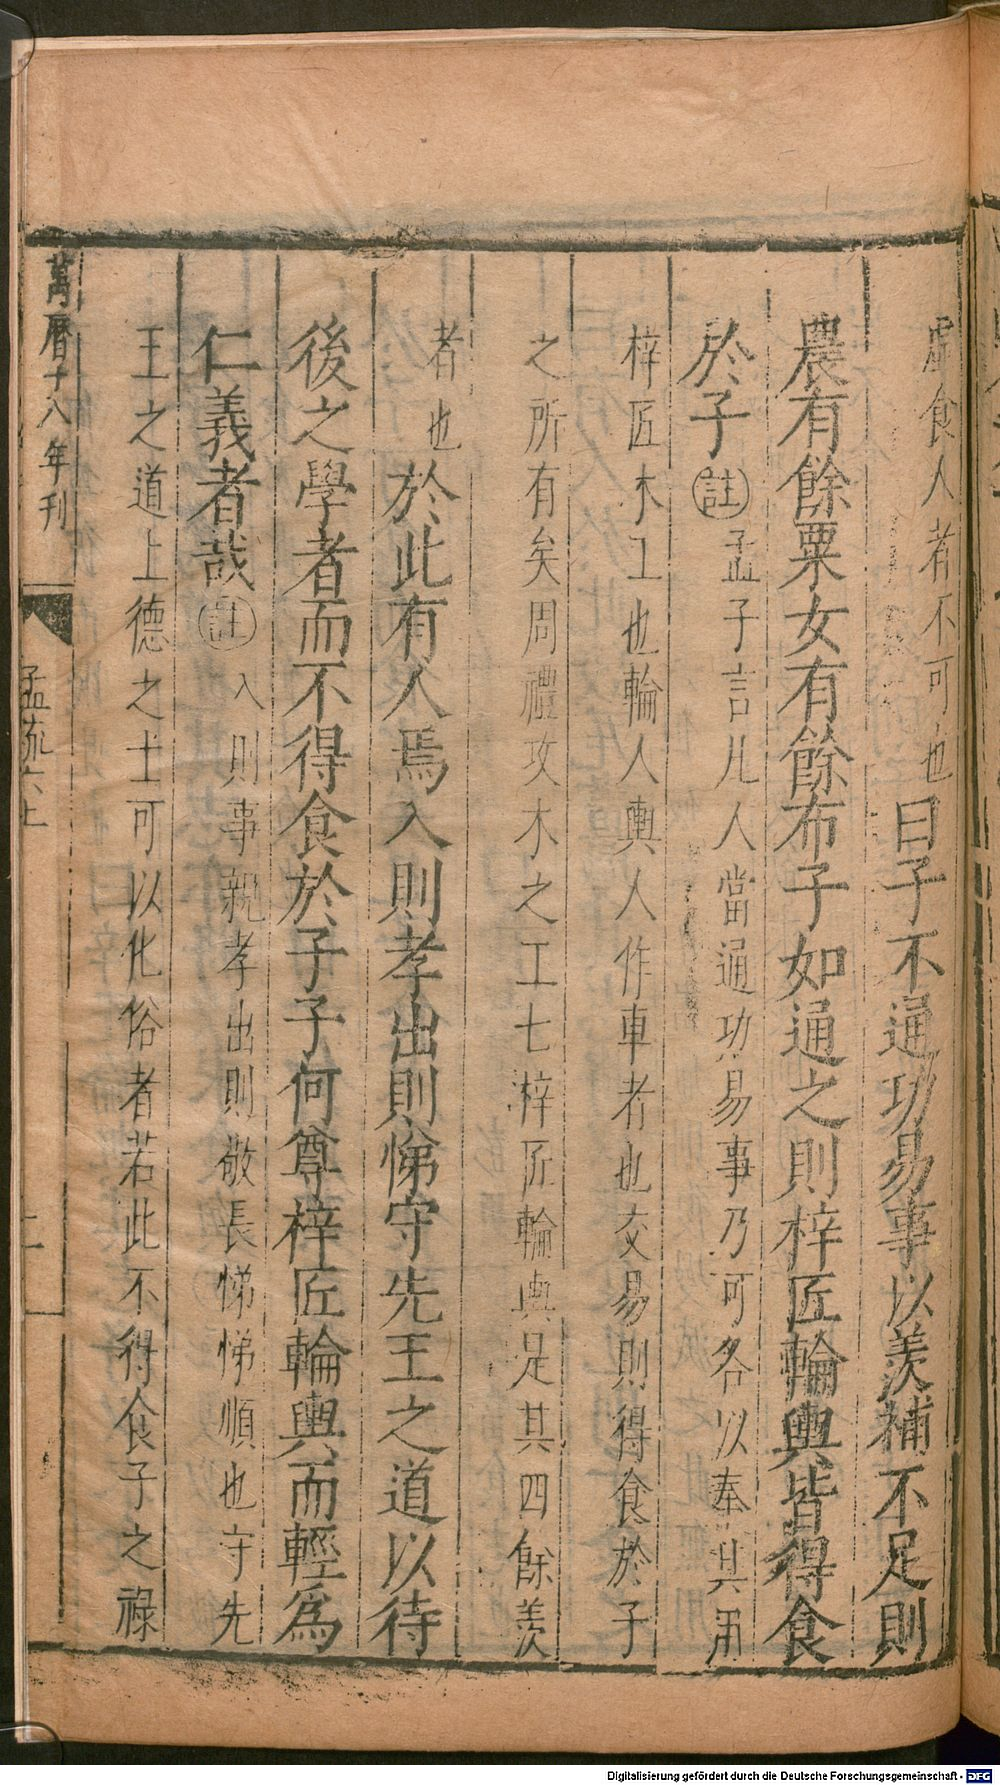 虛食人者不可也曰子不通功易事以羨補不足則
農有餘粟女有餘布子如通之則梓匠輪輿皆得食
於子註孟子言凡人當通功易事乃可各以奉其用
梓匠木工也輪人輿人作車者也交易則得食於子
之所有矣周禮攻木之工七梓匠輪輿是其四餘羨
者也於此有人焉入則孝出則悌守先王之道以待
後之學者而不得食於子子何尊梓匠輪輿而輕為
仁義者哉註入則事親孝出則敬長悌悌順也守先
王之道上德之士可以化俗者若此不得食子之祿
萬曆十八年刊
孟疏六上
二
Digitalisierung gefördert durch die Deutsche Forschungsgemeinschaft - DFG